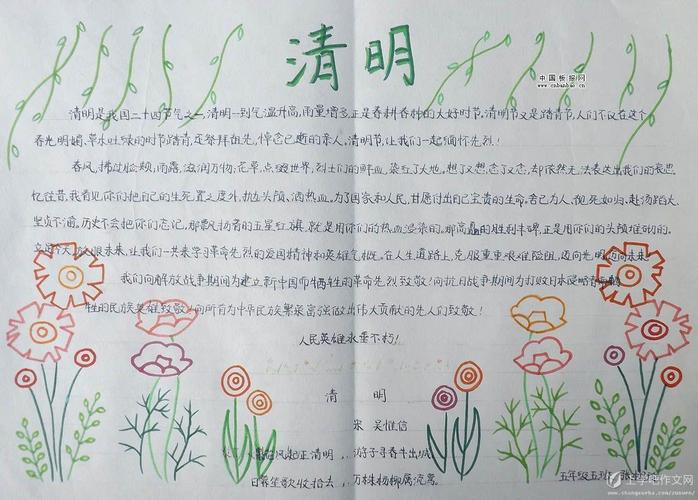 清明
中国板报网
www.cnbanbao.cn
清明是我国二十四节气之一,清明一到气温升高,雨量增多,正是春耕春种的大好时节,清明节又是踏青节,人们不仅在这个
春光明媚,草木吐绿的时节踏青,还祭拜祖先,悼念已逝的亲人,清明节,让我们一起缅怀先烈!
春风,拂过脸颊,雨露,滋润万物;花草,点缀世界,烈士们的鲜血,染红了大地。想了又想,念了又念,却依然无法表达出我们的哀思
忆往昔,我看见你们把自己的生死置之度外,抛头颅、洒热血,为了国家和人民,甘愿付出自己宝贵的生命,舍己为人,视死如归,赴汤蹈火、
坚贞不渝。历史不会把你们忘记,那飘扬着的五星红旗,就是用你们的热血浸染的,那高矗的胜利丰碑,正是用你们的头颅堆砌的。
立足今天,放眼未来,让我们一共来学习革命先烈的爱国精神和英雄气概,在人生道路上,克服重重艰难险阻,迈向光明迈向未来!
我们向解放战争期间为建立新中国而牺牲的革命先烈致敬!向抗日战争期间为打败日本侵略者而牺
牲的民族英雄致敬!向所有为中华民族繁荣富强做出伟大贡献的先人们致敬!
人民英雄永垂不朽!
清 明
宋 吴惟信
风起正清明,游子寻春半出城
日暮笙歌收拾去,万株杨柳属流莺。
五年级五班
上学吧作文网
www.shangxueba.com/zuowen/